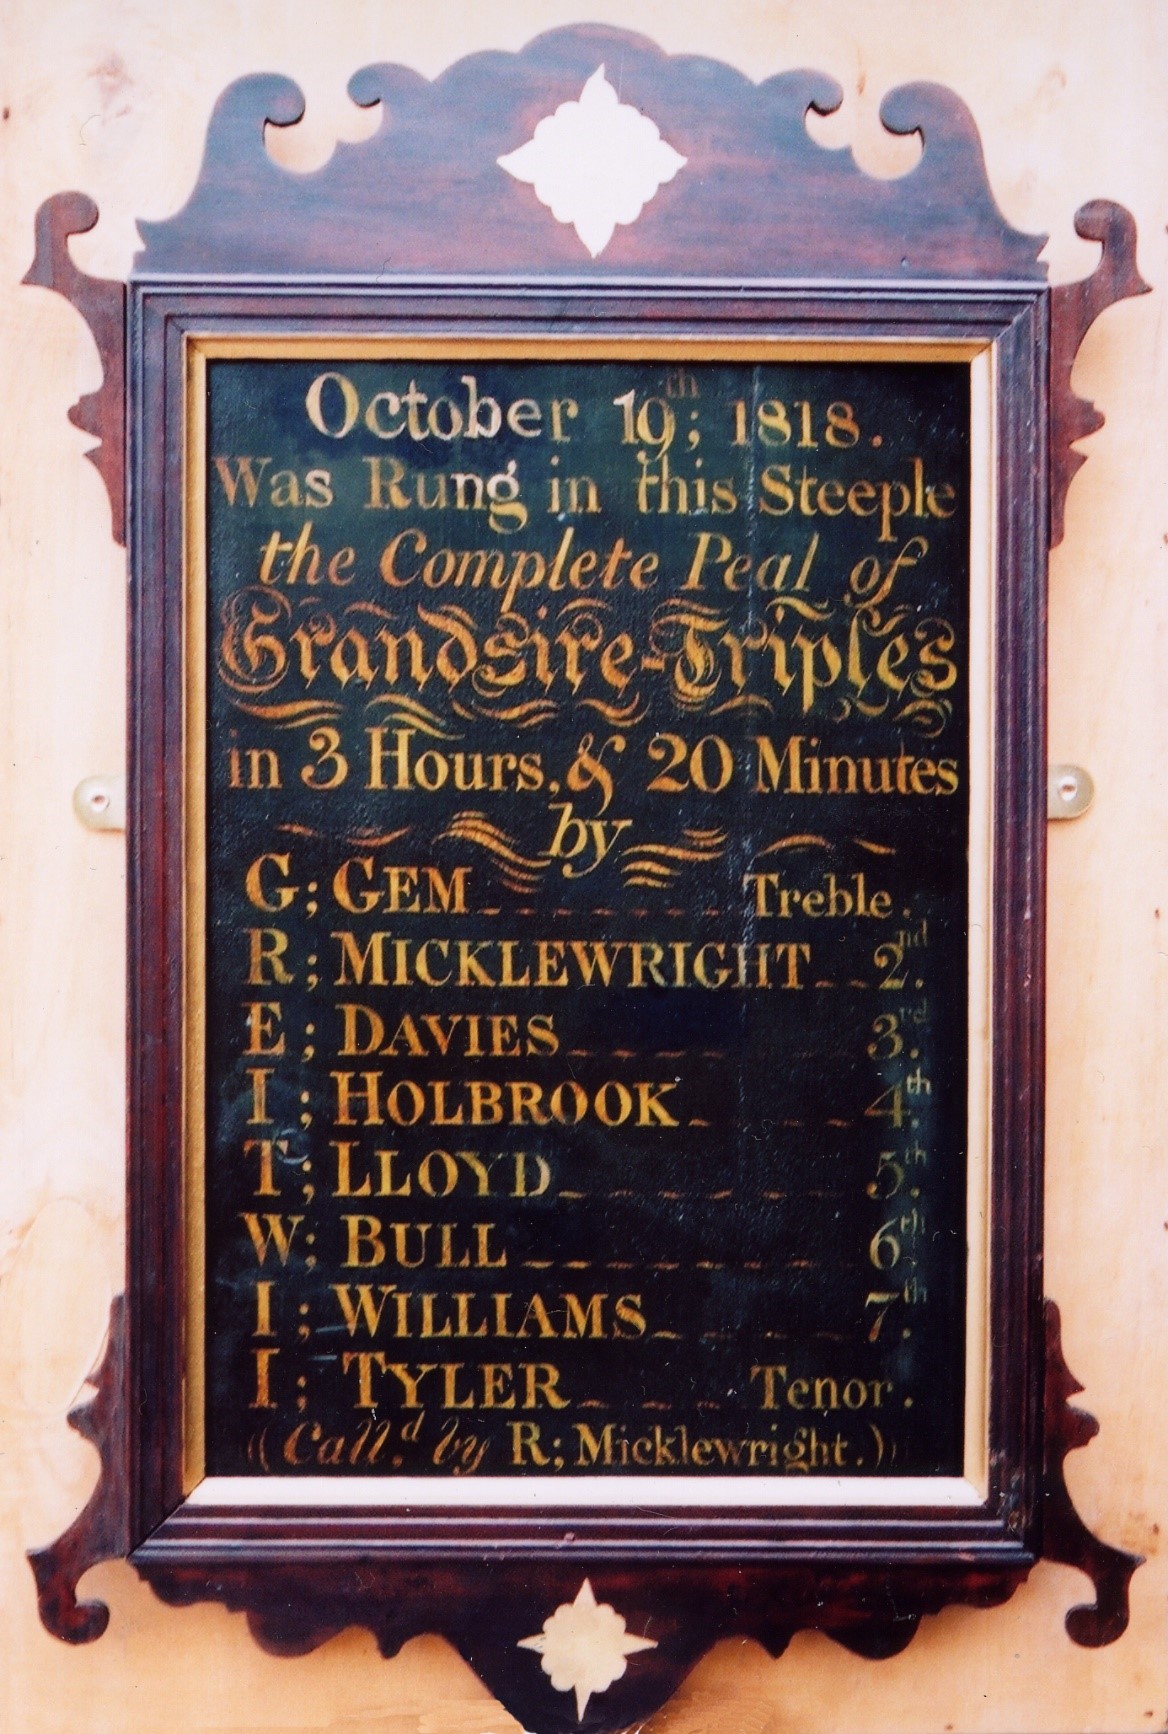 October 19th; 1818.
Was Rung in this Steeple
the Complete Peal of
Grandsire-Triples
in 3 Hours, & 20 Minutes
by
G; GEM Treble.
R; MICKLEWRIGHT 2nd.
E; DAVIES 3rd.
I; HOLBROOK 4th.
T; LLOYD 5th.
W; BULL 6th.
I; WILLIAMS 7th.
I; TYLER Tenor.
((Call.d by R; Micklewright.))